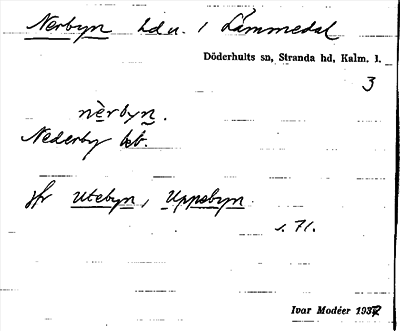 Nerbyn hdn. i Lämmedal
Döderhults sn, Stranda hd, Kalm. l.
3
nèrbyn.
Nederby bt.
jfr Utebyn, Uppebyn.
s. 71.
Ivar Modéer 1937